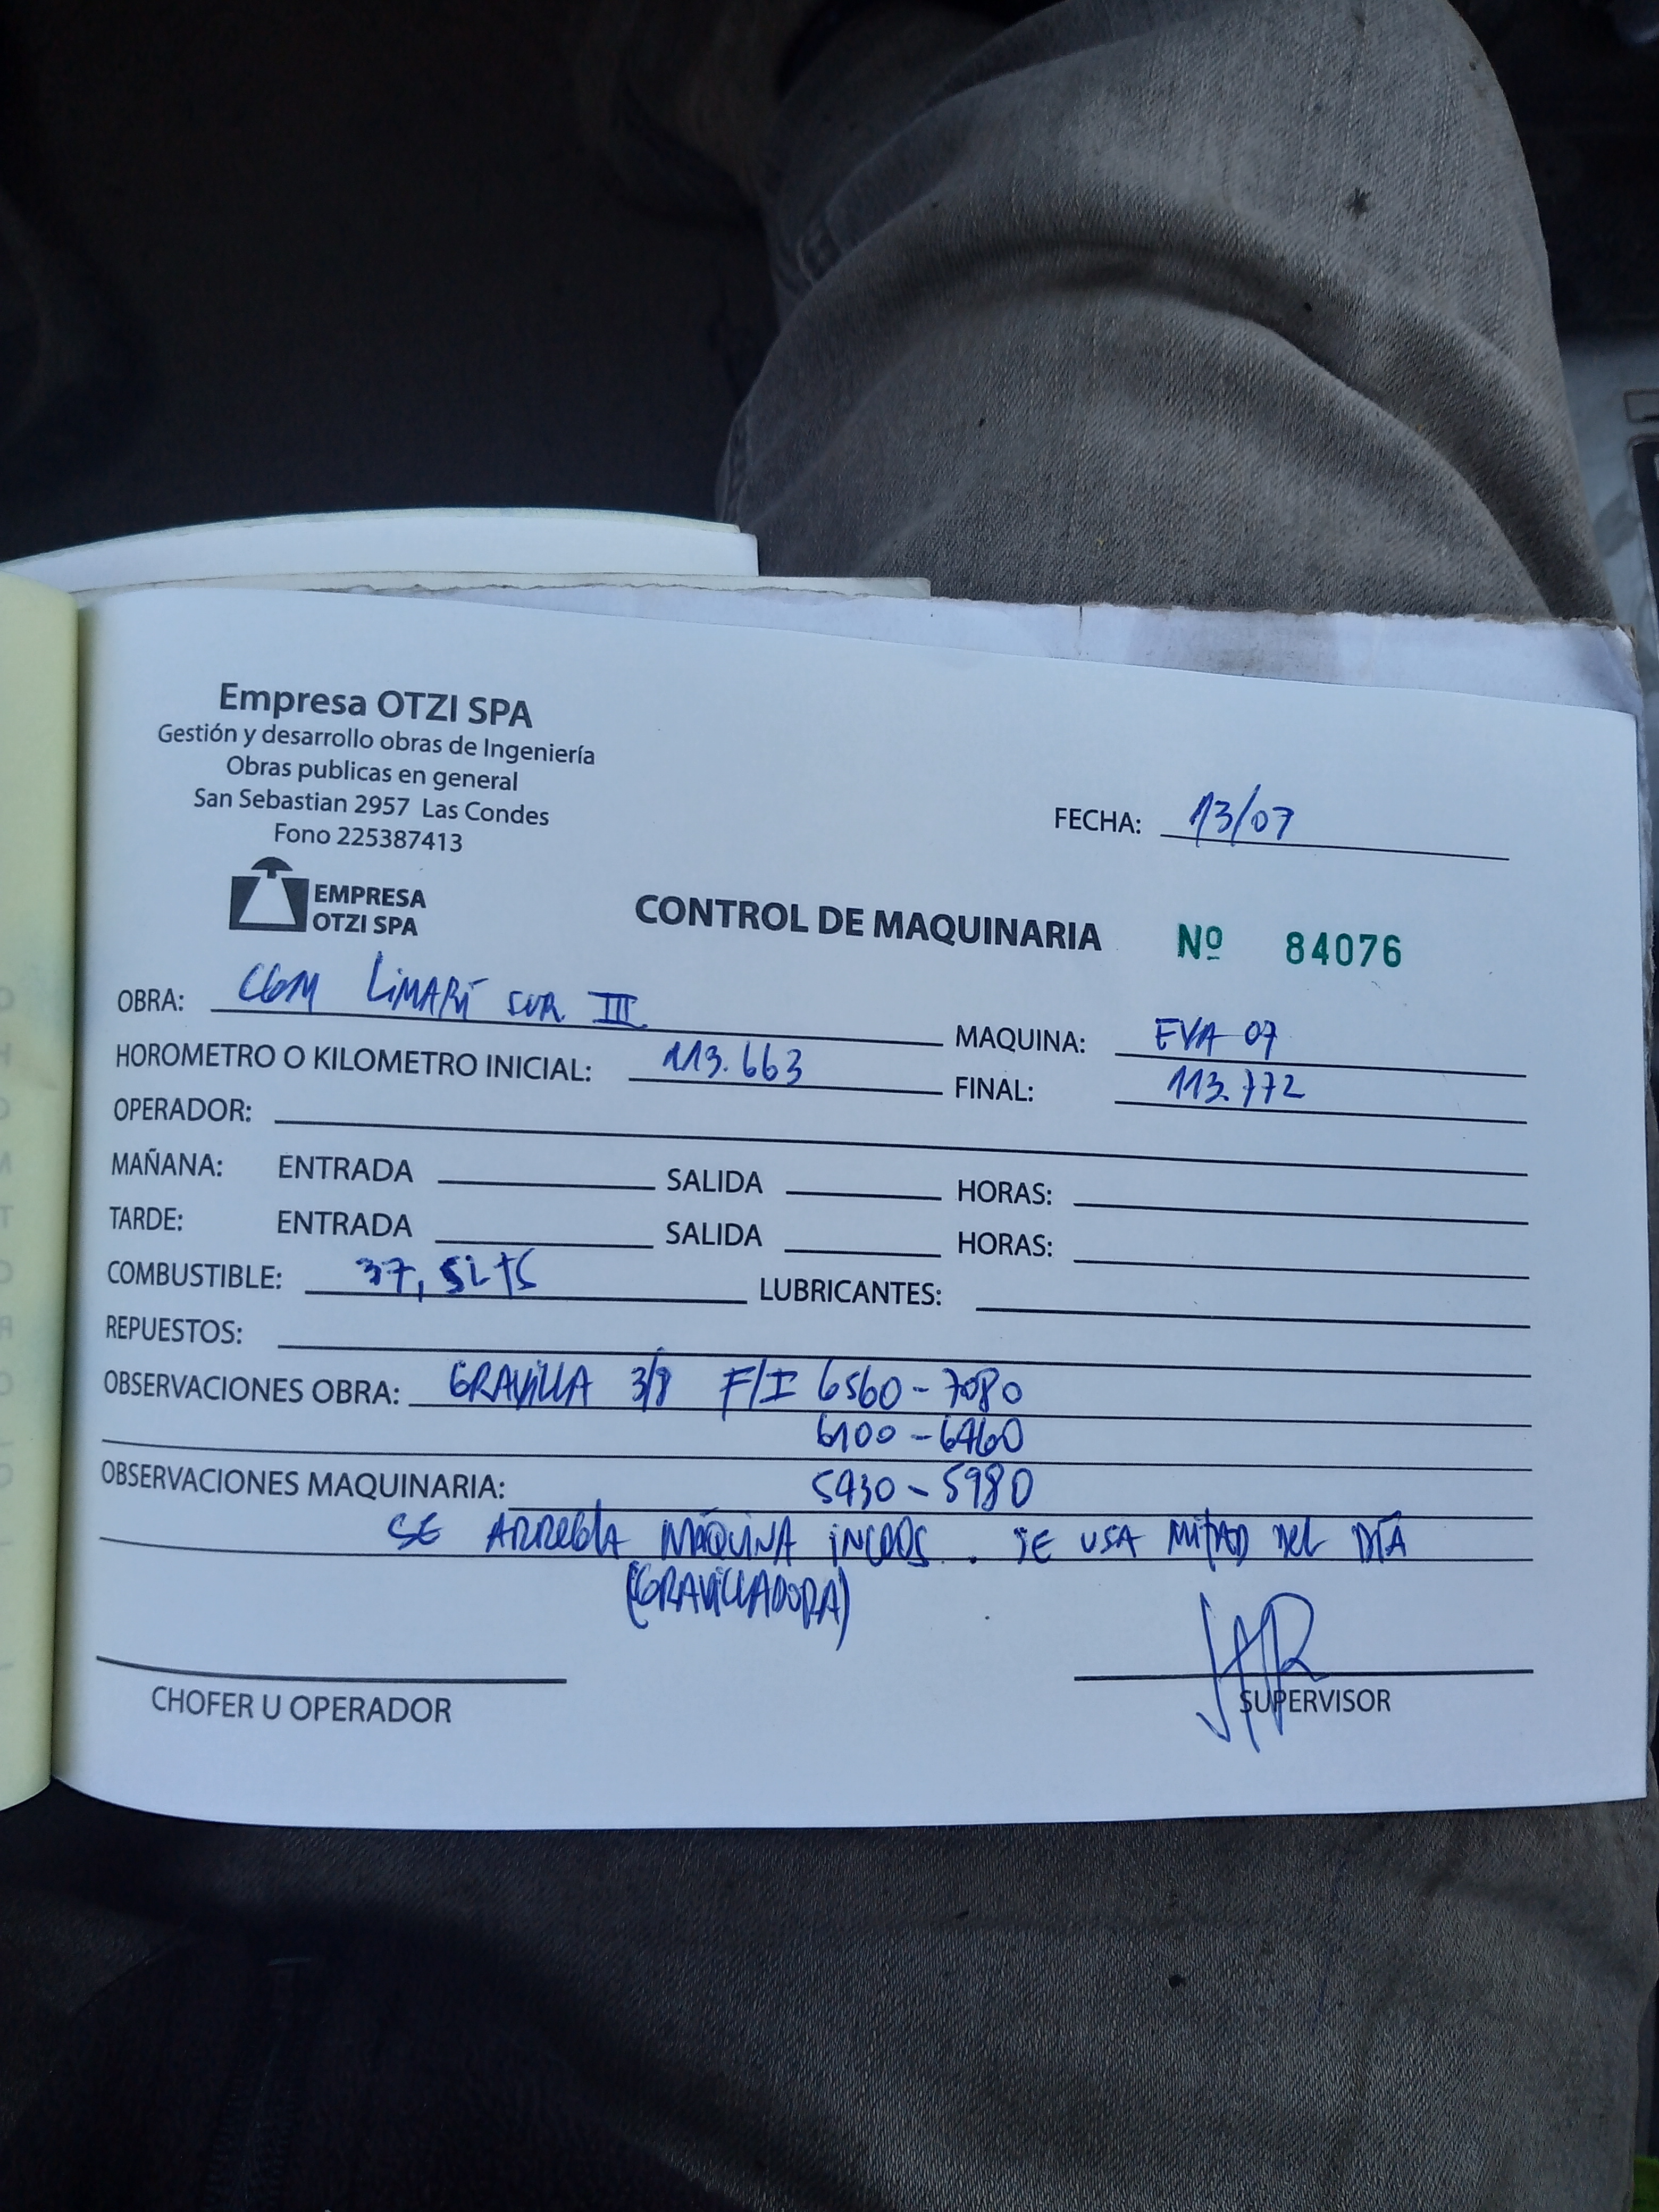 Empresa OTZI SPA
Gestión y desarrollo obras de Ingeniería
Obras publicas en general
San Sebastian 2957 Las Condes
Fono 225387413
EMPRESA
OTZI SPA
FECHA: 13/07
CONTROL DE MAQUINARIA Nº 84076
OBRA: CGM LIMARÍ SUR III MAQUINA: EVA 07
HOROMETRO O KILOMETRO INICIAL: 113.663 FINAL: 113.772
OPERADOR:
MAÑANA: ENTRADA SALIDA HORAS:
TARDE: ENTRADA SALIDA HORAS:
COMBUSTIBLE: 37,5LTS LUBRICANTES:
REPUESTOS:
OBSERVACIONES OBRA: GRAVILLA 3/8 F/I 6560-7080
6100-6460
OBSERVACIONES MAQUINARIA: 5930-5980
SE ARREGLA MAQUINA . SE USA MITAD DEL DÍA
(GRAVILLADORA)
CHOFER U OPERADOR
SUPERVISOR